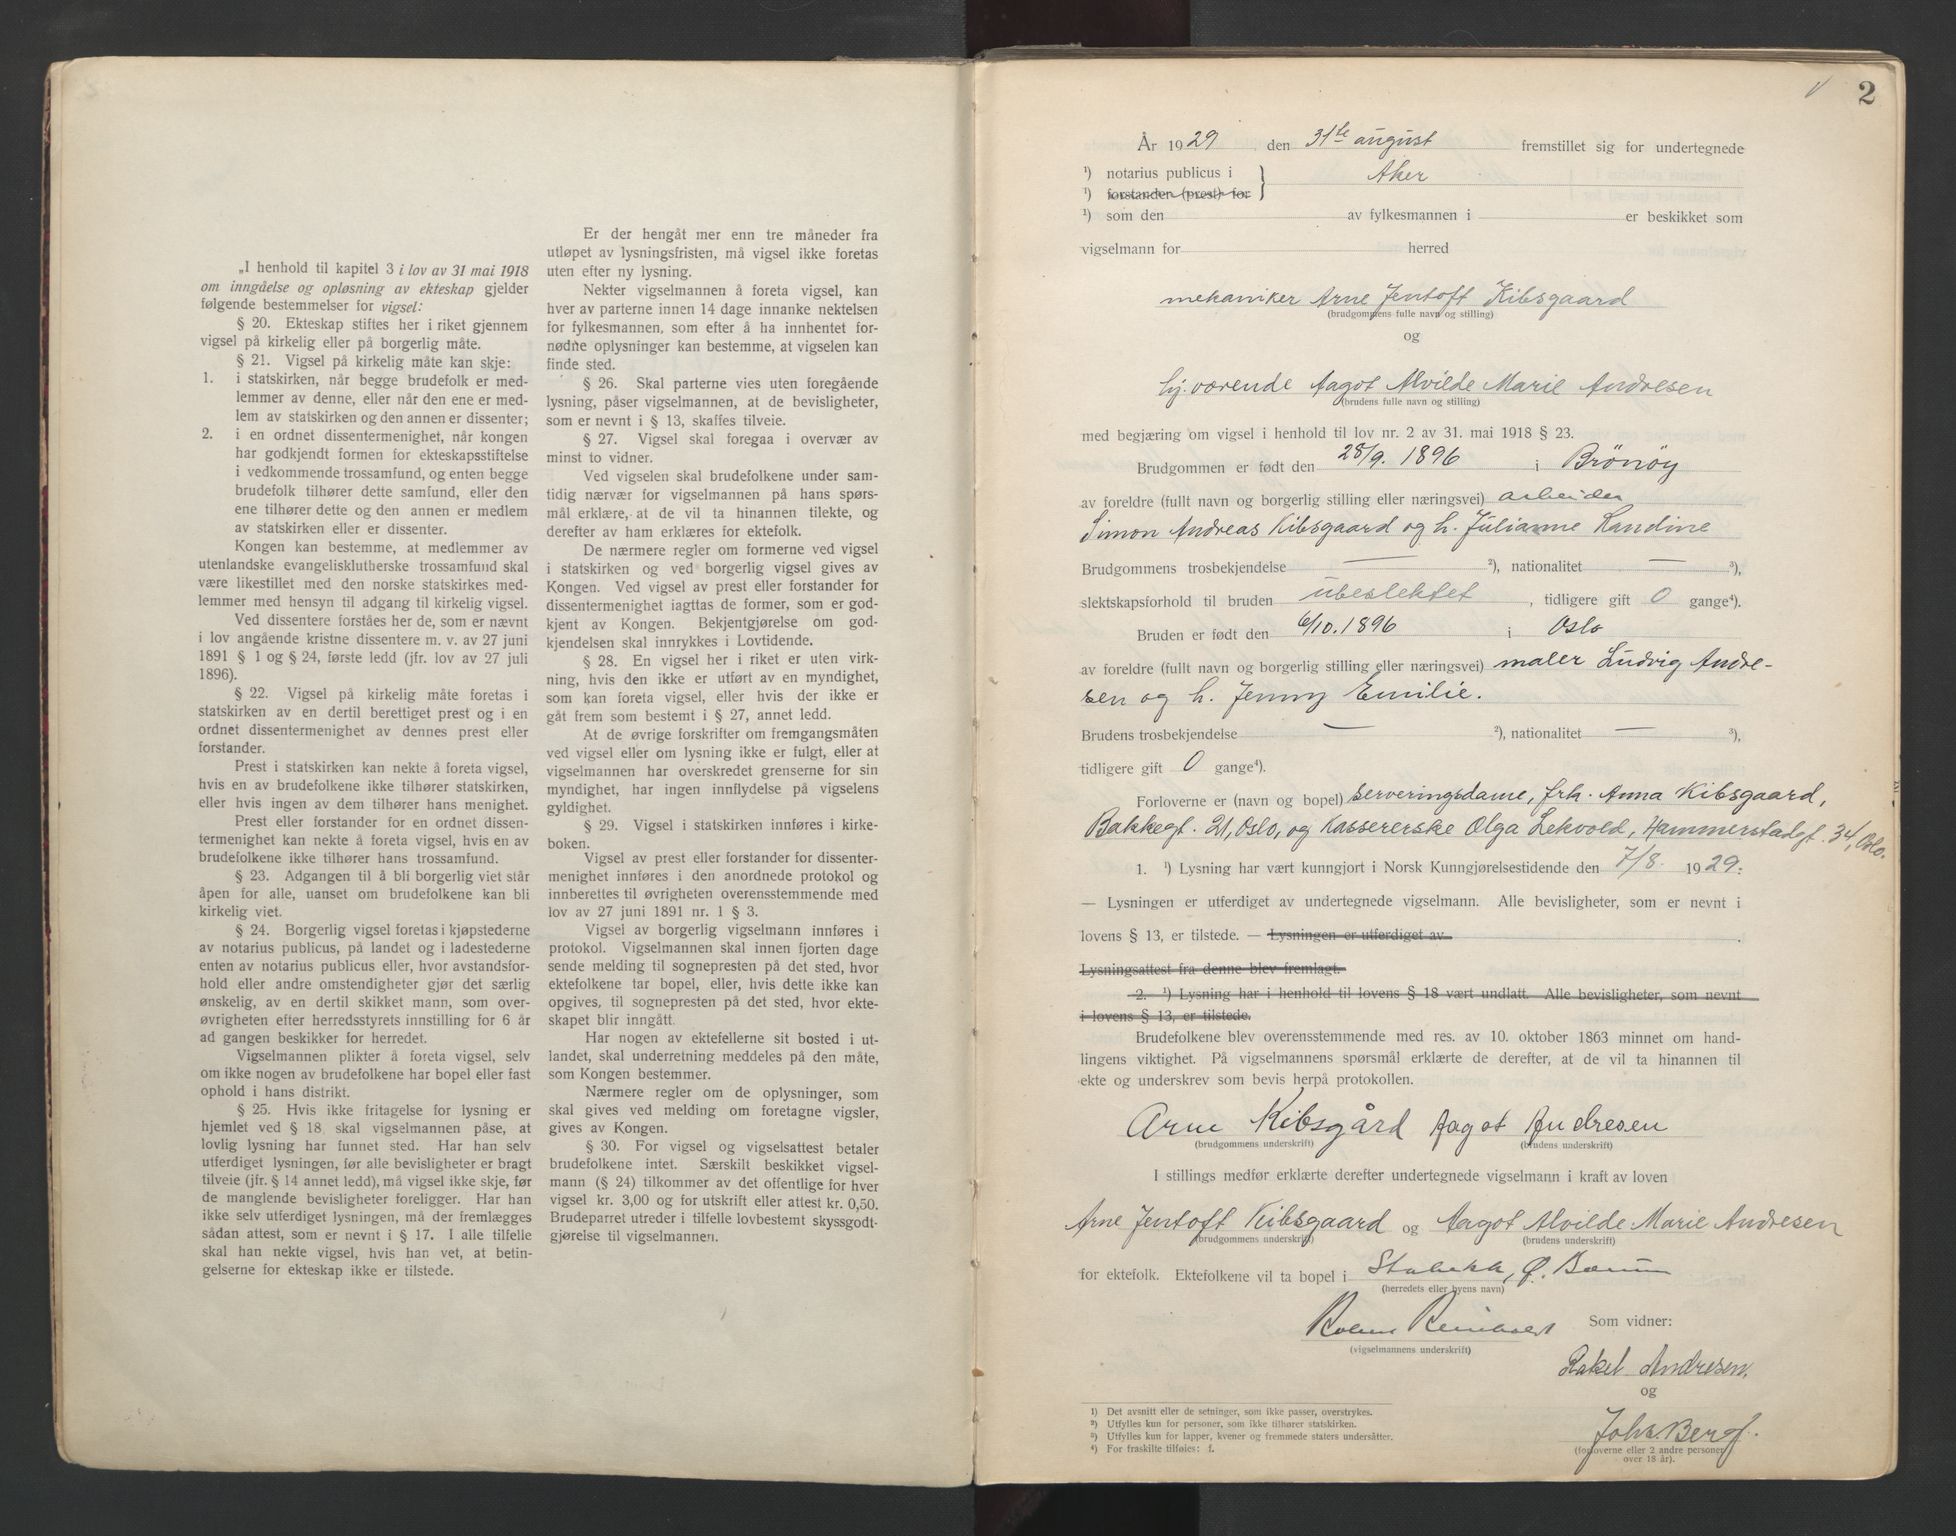 „I henhold til kapitel 3 i lov av 31 mai 1918
om inngåelse og opløsning av ekteskap gjelder
følgende bestemmelser for vigsel:
§ 20. Ekteskap stiftes her i riket gjennem
vigsel på kirkelig eller på borgerlig måte.
§ 21. Vigsel på kirkelig måte kan skje:
1. i statskirken, når begge brudefolk er med-
lemmer av denne, eller når den ene er med-
lem av statskirken og den annen er dissenter;
2. i en ordnet dissentermenighet, når kongen
har godkjendt formen for ekteskapsstiftelse
i vedkommende trossamfund, og enten begge
brudefolk tilhører dette samfund, eller den
ene tilhører dette og den annen er medlem
av statskirken eller er dissenter.
Kongen kan bestemme, at medlemmer av
utenlandske evangelisklutherske trossamfund skal
være likestillet med den norske statskirkes med-
lemmer med hensyn til adgang til kirkelig vigsel.
Ved dissentere forståes her de, som er nævnt
i lov angående kristne dissentere m. v. av 27 juni
1891 § 1 og § 24, første ledd (jfr. lov av 27 juli
1896).
§ 22. Vigsel på kirkelig måte foretas i
statskirken av en dertil berettiget prest og i en
ordnet dissentermenighet av dennes prest eller
forstander.
Prest i statskirken kan nekte å foreta vigsel,
hvis en av brudefolkene ikke tilhører statskirken,
eller hvis ingen av dem tilhører hans menighet.
Prest eller forstander for en ordnet dissen-
termenighet kan nekte å foreta vigsel, hvis en av
brudefolkene ikke tilhører hans trossamfund.
§ 23. Adgangen til å bli borgerlig viet står
åpen for alle, uanset om brudefolkene kan bli
kirkelig viet.
§ 24. Borgerlig vigsel foretas i kjøpstederne
av notarius publicus, på landet og i ladestederne
enten av notarius publicus eller, hvor avstandsfor-
hold eller andre omstendigheter gjør det særlig
ønskelig, av en dertil skikket mann, som over-
øvrigheten efter herredsstyrets innstilling for 6 år
ad gangen beskikker for herredet.
Vigselmannen plikter å foreta vigsel, selv
om ikke nogen av brudefolkene har bopel eller fast
ophold i hans distrikt.
§ 25. Hvis ikke fritagelse for lysning er
hjemlet ved § 18 skal vigselmannen påse, at
lovlig lysning har funnet sted. Har han selv
utferdiget lysningen, før alle bevisligheter er bragt
tilveie (jfr. § 14 annet ledd), må vigsel ikke skje, før
de manglende bevisligheter foreligger. Har han
ikke selv utferdiget lysningen, må der fremlægges
sådan attest, som er nevnt i § 17. I alle tilfelle
skal han nekte vigsel, hvis han vet, at betin-
gelserne for ekteskap ikke er tilstede.
Er der hengåt mer enn tre måneder fra
utløpet av lysningsfristen, må vigsel ikke foretas
uten efter ny lysning.
Nekter vigselmannen å foreta vigsel, kan
hver av parterne innen 14 dage innanke nektelsen
for fylkesmannen, som efter å ha innhentet for-
nødne oplysninger kan bestemme, at vigselen kan
finde sted.
§ 26. Skal parterne vies uten foregående
lysning, påser vigselmannen, at de bevisligheter,
som er nevnt i § 13, skaffes tilveie.
§ 27. Vigsel skal foregaa i overvær av
minst to vidner.
Ved vigselen skal brudefolkene under sam-
tidig nærvær for vigselmannen på hans spørs-
mål erklære, at de vil ta hinannen tilekte, og
derefter av ham erklæres for ektefolk.
De nærmere regler om formerne ved vigsel
i statskirken og ved borgerlig vigsel gives av
Kongen. Ved vigsel av prest eller forstander for
dissentermenighet iagttas de former, som er god-
kjent av Kongen. Bekjentgjørelse om god-
kjendelsen skal innrykkes i Lovtidende.
§ 28. En vigsel her i riket er uten virk-
ning, hvis den ikke er utført av en myndighet,
som kan foreta vigsel, eller hvis der ikke er
gåt frem som bestemt i § 27, annet ledd.
At de øvrige forskrifter om fremgangsmåten
ved vigsel eller om lysning ikke er fulgt, eller at
vigselmannen har overskredet grenserne for sin
myndighet, har ingen innflydelse på vigselens
gyldighet.
§ 29. Vigsel i statskirken innføres i kirke-
boken.
Vigsel av prest eller forstander for dissenter-
menighet innføres i den anordnede protokol og
innberettes til øvrigheten overensstemmende med
lov av 27 juni 1891 nr. 1 § 3.
Vigsel av borgerlig vigselmann innføres i
protokol. Vigselmannen skal innen fjorten dage
sende melding til sognepresten på det sted, hvor
ektefolkene tar bopel, eller, hvis dette ikke kan
opgives, til sognepresten på det sted, hvor ekte-
skapet blir inngått.
Har nogen av ektefellerne sit bosted i ut-
landet, skal underretning meddeles på den måte,
som Kongen bestemmer.
Nærmere regler om de oplysninger, som
skal gives ved melding om foretagne vigsler,
gives av Kongen.
§ 30. For vigsel og vigselsattest betaler
brudefolkene intet. Særskilt beskikket vigsel-
mann (§ 24) tilkommer av det offentlige for hver
vigsel kr. 3,00 og for utskrift eller attest kr. 0,50.
Brudeparret utreder i tilfelle lovbestemt skyssgodt-
gjørelse til vigselmannen.
2
År 1929 den 31te august fremstillet sig for undertegnede
¹) notarius publicus i } Aker
¹) forstander (prest) for
¹) som den av fylkesmannen i er beskikket som
vigselmann for herred
mekaniker Arne Jentoft Kibsgaard
(brudgommens fulle navn og stilling)
og
hj.værende Aagot Alvilde Marie Andresen
(brudens fulle navn og stilling)
med begjæring om vigsel i henhold til lov nr. 2 av 31. mai 1918 § 23.
Brudgommen er født den 28/9. 1896 i Brönöy
av foreldre (fullt navn og borgerlig stilling eller næringsvei) arbeider
Simon Andreas Kibsgaard og h. Julianne Handine
Brudgommens trosbekjendelse — ²), nationalitet — ³),
slektskapsforhold til bruden ubeslektet, tidligere gift 0 gange⁴).
Bruden er født den 6/10.1896 i Oslo
av foreldre (fullt navn og borgerlig stilling eller næringsvei) maler Ludvig Andre-
sen og h. Jenny Emilie.
Brudens trosbekjendelse — ²), nationalitet — ³),
tidligere gift 0 gange⁴).
Forloverne er (navn og bopel) serveringsdame, frk. Anna Kibsgaard,
Bakkegt. 21, Oslo, og kassererske Olga Lekvold, Hammerstadgt. 34, Oslo.
1. ¹) Lysning har vært kunngjort i Norsk Kunngjørelsestidende den 7/8. 1929.
— Lysningen er utferdiget av undertegnede vigselmann. Alle bevisligheter, som er nevnt i
lovens § 13, er tilstede. — Lysningen er utferdiget av
Lysningsattest fra denne blev fremlagt.
2. ¹) Lysning har i henhold til lovens § 18 vært undlatt. Alle bevisligheter, som nevnt
i lovens § 13, er tilstede.
Brudefolkene blev overensstemmende med res. av 10. oktober 1863 minnet om hand-
lingens viktighet. På vigselmannens spørsmål erklærte de derefter, at de vil ta hinannen til
ekte og underskrev som bevis herpå protokollen.
Arne Kibsgård Aagot Andresen
(brudgommens underskrift) (brudens underskrift)
I stillings medfør erklærte derefter undertegnede vigselmann i kraft av loven
Arne Jentoft Kibsgaard og Aagot Alvilde Marie Andresen
(brudgommens underskrift) (brudens underskrift)
for ektefolk. Ektefolkene vil ta bopel i Stabekk, Ø. Bærum
(herredets eller byens navn)
Som vidner:
(vigselmannens underskrift)
Rakel Andresen.
og
Joh. Berg.
(forloverne eller 2 andre personer
over 18 år).
1) Det avsnitt eller de setninger, som ikke passer, overstrykes.
2) Utfylles kun for personer, som ikke tilhører statskirken.
3) Utfylles kun for lapper, kvener og fremmede staters undersåtter.
4) For fraskilte tilføies: f.